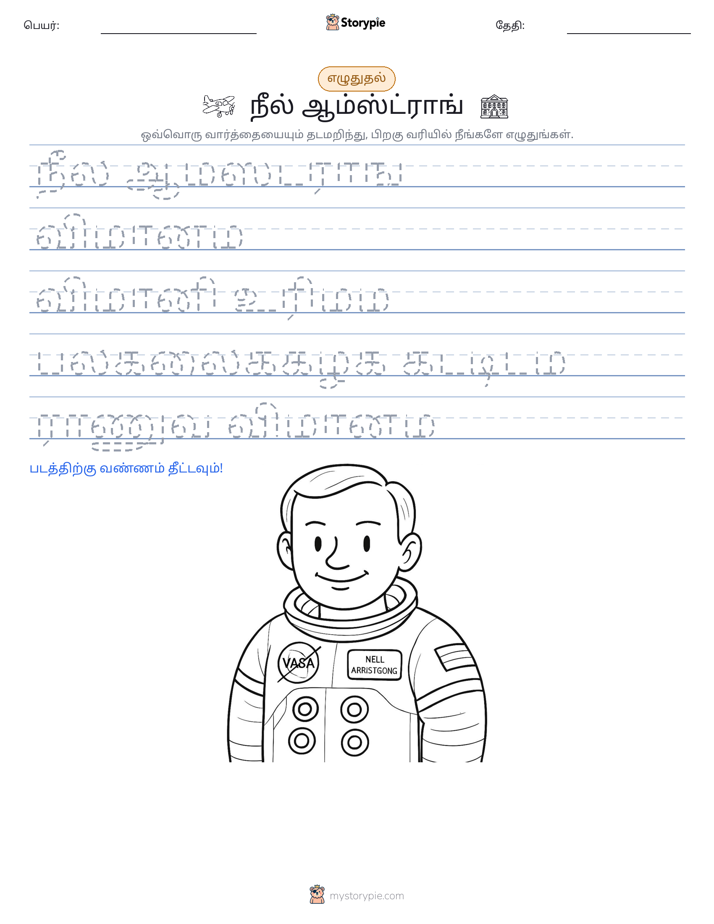 பெயர்:
Storypie
தேதி:
எழுதுதல்
நீல் ஆம்ஸ்ட்ராங்
ஒவ்வொரு வார்த்தையையும் தடமறிந்து, பிறகு வரியில் நீங்களே எழுதுங்கள்.
நீல் ஆம்ஸ்ட்ராங்
விமானம்
விமானி உரிமம்
பல்கலைக்கழகக் கட்டிடம்
ராணுவ விமானம்
படத்திற்கு வண்ணம் தீட்டவும்!
VASA
NELL
ARRISTGONG
mystorypie.com